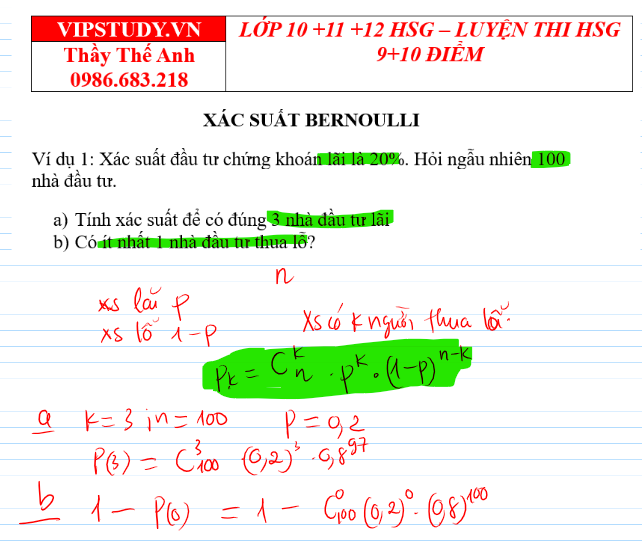 VIPSTUDY.VN
Thầy Thế Anh
0986.683.218
LỚP 10 +11 +12 HSG – LUYỆN THI HSG
9+10 ĐIỂM
XÁC SUẤT BERNOULLI
Ví dụ 1: Xác suất đầu tư chứng khoán lãi là 20%. Hỏi ngẫu nhiên 100
nhà đầu tư.
a) Tính xác suất để có đúng 3 nhà đầu tư lãi
b) Có ít nhất 1 nhà đầu tư thua lỗ?
n
xs lãi p
xs lỗ 1-p
Xs có k người thua lỗ.
P_k = C_n^k . p^k . (1-p)^{n-k}
a k=3 ; n=100 p=0,2
P(3) = C_{100}^3 (0,2)^3 . 0,8^{97}
b 1 - P(0) = 1 - C_{100}^0 (0,2)^0 . (0,8)^{100}